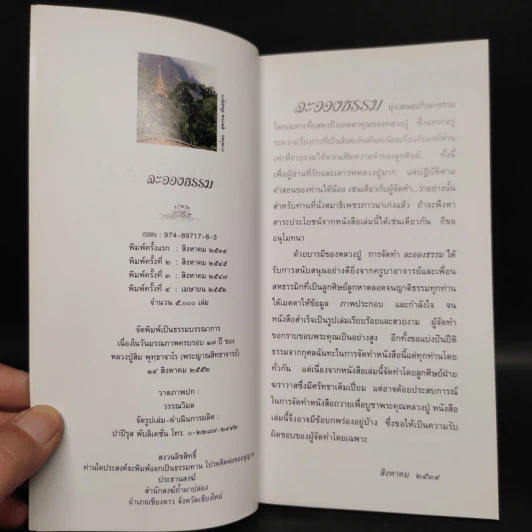 ละอองธรรม
ISBN : 974-89717-8-3
พิมพ์ครั้งแรก : สิงหาคม ๒๕๓๙
พิมพ์ครั้งที่ ๒ : สิงหาคม ๒๕๔๕
พิมพ์ครั้งที่ ๓ : สิงหาคม ๒๕๔๘
พิมพ์ครั้งที่ ๔ : เมษายน ๒๕๕๒
จำนวน ๕,๐๐๐ เล่ม
จัดพิมพ์เป็นธรรมบรรณาการ
เนื่องในวันมรณภาพครบรอบ ๑๗ ปี ของ
หลวงปู่สิม พุทฺธาจาโร (พระญาณสิทธาจารย์)
๑๔ สิงหาคม ๒๕๕๒
วาดภาพปก :
วรรณวิมล
จัดรูปเล่ม-ดำเนินการผลิต :
ปาปิรุส พับลิเคชั่น โทร. ๐-๒๒๘๗-๒๔๙๒
สงวนลิขสิทธิ์
ท่านใดประสงค์จะพิมพ์แจกเป็นธรรมทาน โปรดติดต่อขออนุญาต
ประธานสงฆ์
สำนักสงฆ์ถ้ำผาปล่อง
อำเภอเชียงดาว จังหวัดเชียงใหม่
ละอองธรรม มุ่งเสนอปกิณกธรรม
โดยเฉพาะที่แสดงถึงเมตตาคุณของหลวงปู่ ซึ่งแทรกอยู่
ระหว่างเรื่องราวที่เป็นสิ่งละอันพันละน้อยเกี่ยวกับองค์ท่าน
เท่าที่รวบรวมได้จากแฟ้มความจำของลูกศิษย์ ทั้งนี้
เพื่อผู้อ่านที่รักและเคารพหลวงปู่มาก แต่ปฏิบัติตาม
คำสอนของท่านได้น้อย เช่นเดียวกับผู้จัดทำ...ว่าอย่างนั้น
สำหรับท่านที่นั่งสมาธิเพชรภาวนาเก่งแล้ว ถ้าจะพึงหา
สาระประโยชน์จากหนังสือเล่มนี้ได้เช่นเดียวกัน ก็ขอ
อนุโมทนา
ด้วยบารมีของหลวงปู่ การจัดทำ ละอองธรรม ได้
รับการสนับสนุนอย่างดียิ่งจากครูบาอาจารย์และเพื่อน
สหธรรมิกที่เป็นลูกศิษย์ลูกหาตลอดจนญาติธรรมทุกท่าน
ได้เมตตาให้ข้อมูล ภาพประกอบ และกำลังใจ จน
หนังสือสำเร็จเป็นรูปเล่มเรียบร้อยและสวยงาม ผู้จัดทำ
ขอกราบขอบพระคุณเป็นอย่างสูง อีกทั้งขอแบ่งปันปีติ
ธรรมจากกุศลฉันทะในการจัดทำหนังสือนี้แด่ทุกท่านโดย
ทั่วกัน แต่เนื่องจากหนังสือเล่มนี้จัดทำโดยลูกศิษย์ฝ่าย
ฆราวาสซึ่งมีศรัทธาเต็มเปี่ยม แต่อาจด้อยประสบการณ์
ในการจัดทำหนังสือถวายเพื่อบูชาพระคุณหลวงปู่ หนังสือ
เล่มนี้จึงอาจมีข้อบกพร่องอยู่บ้าง ซึ่งขอให้เป็นความรับ
ผิดชอบของผู้จัดทำโดยเฉพาะ
สิงหาคม ๒๕๓๙